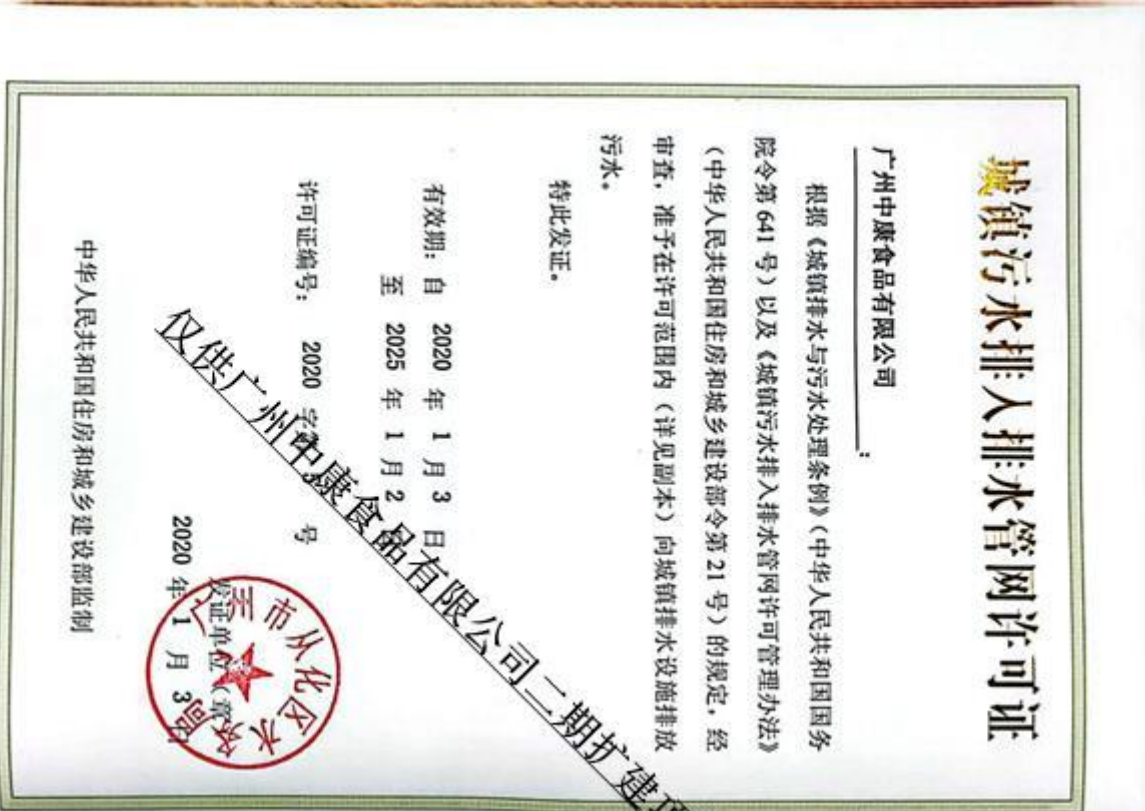 城镇污水排入排水管网许可证
广州中康食品有限公司:
根据《城镇排水与污水处理条例》(中华人民共和国国务
院令第 641 号)以及《城镇污水排入排水管网许可管理办法》
(中华人民共和国住房和城乡建设部令第 21 号)的规定，经
审查，准予在许可范围内（详见副本）向城镇排水设施排放
污水。
特此发证。
有效期: 自 2020 年 1 月 3 日
至 2025 年 1 月 2
许可证编号: 2020 字 号
发证单位（章
2020 年 1 月 3 日
广州市从化区水务局
中华人民共和国住房和城乡建设部监制
仅供广州中康食品有限公司二期扩建项